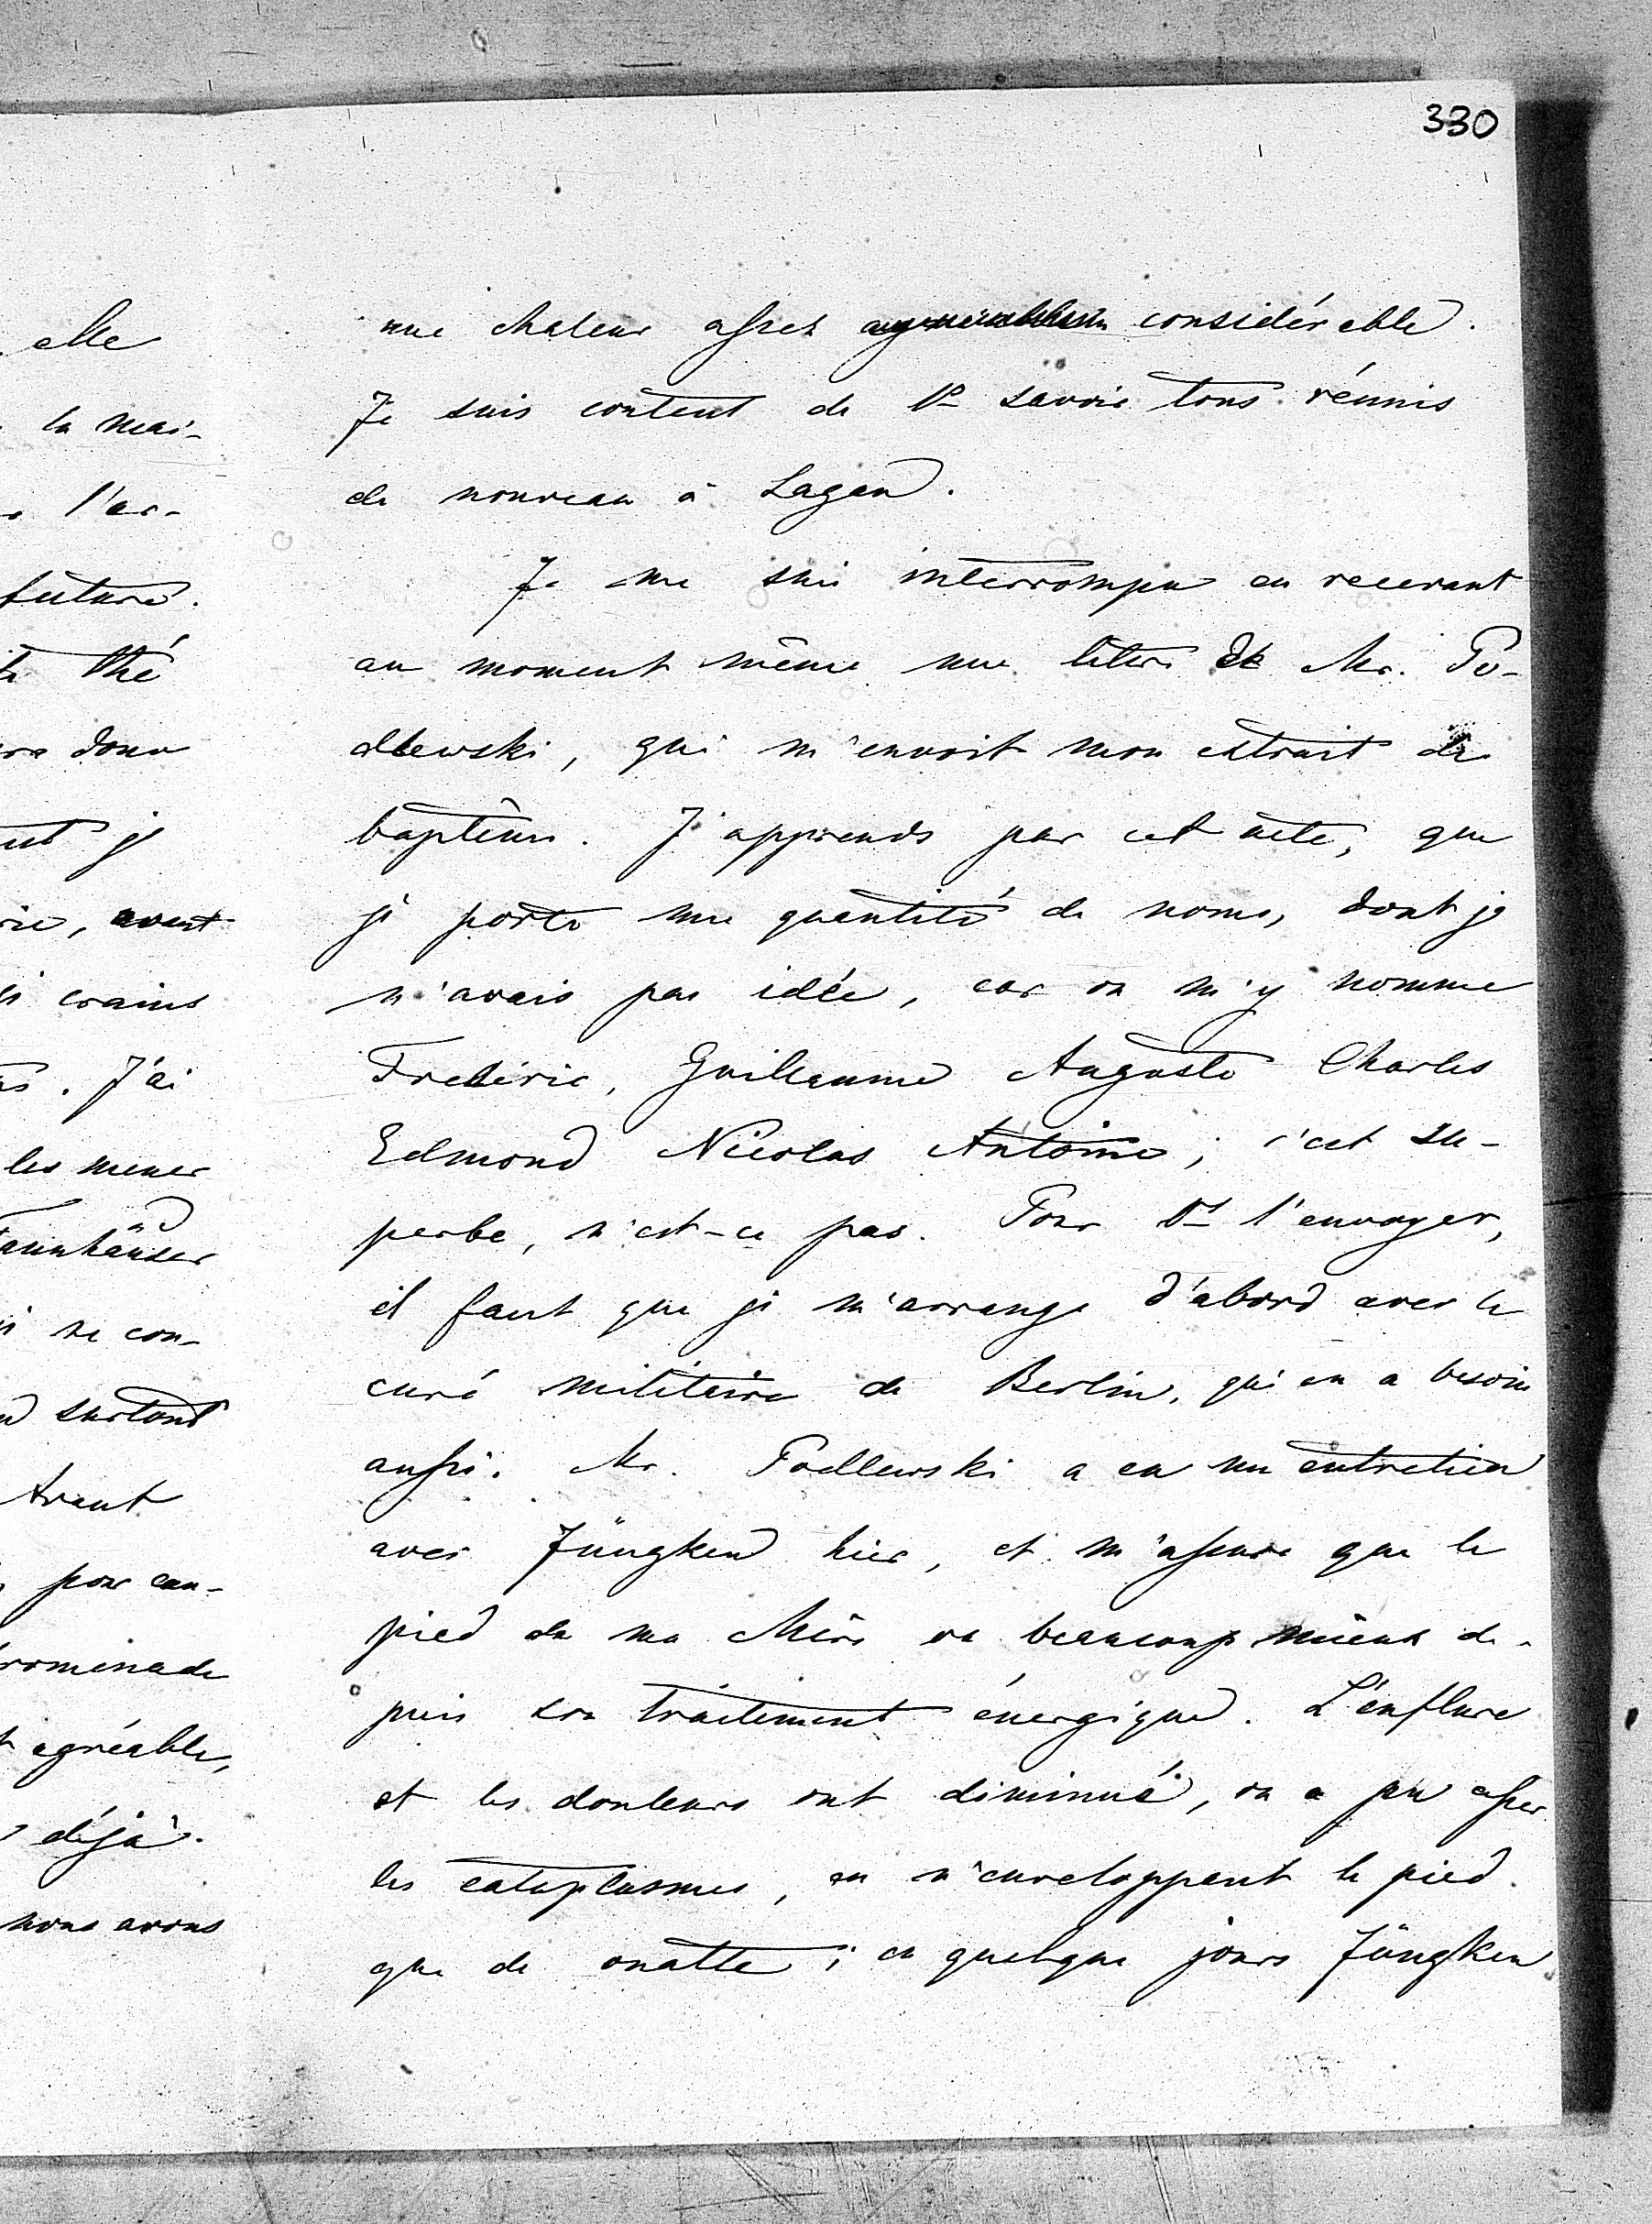 330
elle
la mai-
l'ar-
future.
thé
donc
je
, avant
crains
. J'ai
les mener
Tannhäuser
ne con-
surtout
trant
pour cau-
promenade
agréable,
déjà.
nous avons
une chaleur assez considérable.
Je suis content de Vs savoir tous réunis
de nouveau à Sagan.
Je me suis interrompu en recevant
au moment même une lettre de Mr. Po-
dlewski, qui m'envoit mon extrait de
baptême. J'apprends par cet acte, que
je porte une quantité de noms, dont je
n'avais pas idée, car on m'y nomme
Frédéric, Guillaume Auguste Charles
Edmond Nicolas Antoine; c'est su-
perbe, n'est-ce pas. Pour Vs l'envoyer,
il faut que je m'arrange d'abord avec le
curé militaire de Berlin, qui en a besoin
aussi. Mr. Podlewski a eu un entretien
avec Jüngken hier, et m'assure que le
pied de ma Mère va beaucoup mieux de-
puis son traitement énergique. L'enflure
et les douleurs ont diminué, on a pu
les cataplasmes, on n'enveloppent le pied
que de ouatte; en quelque jours Jüngken